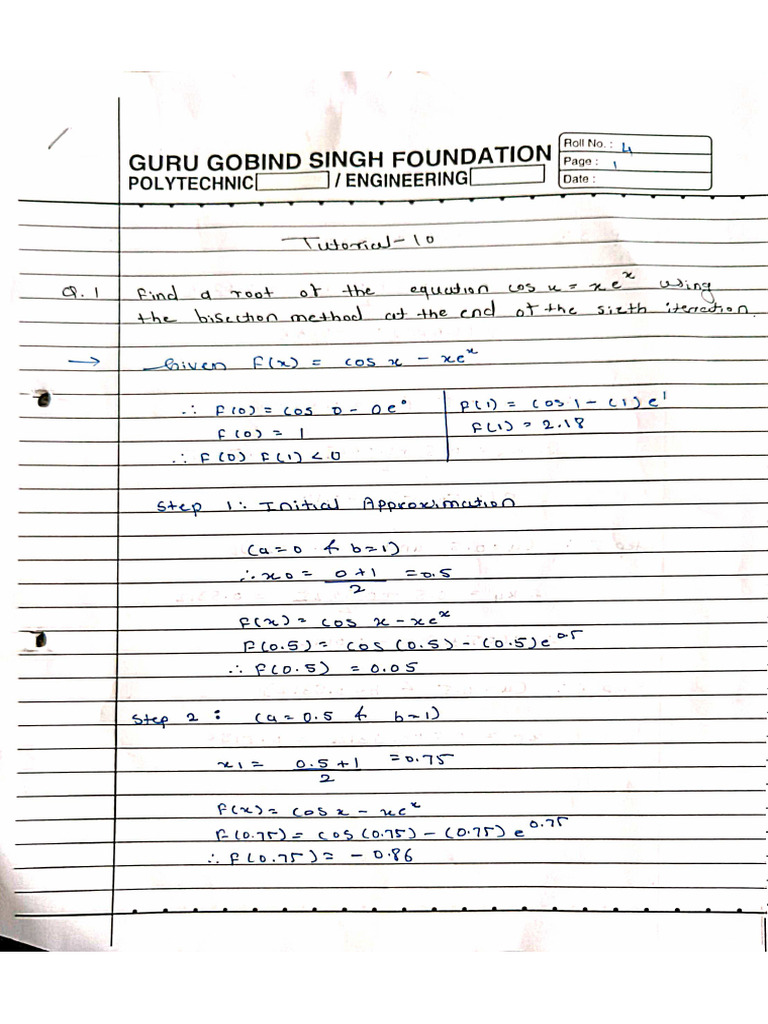 GURU GOBIND SINGH FOUNDATION
POLYTECHNIC / ENGINEERING
Roll No. : 4
Page : 1
Date :
Tutorial-10
Q.1 Find a root of the equation cos x = xe^x using
the bisection method at the end of the sixth iteraction.
→ Given F(x) = cos x - xe^x
∴ F(0) = cos 0 - 0e° | F(1) = cos 1 - (1) e^1
F(0) = 1 | F(1) = 2.18
∴ F(0) F(1) < 0
Step 1: Initial Approximation
(a=0 & b=1)
∴ x0 = 0+1/2 = 0.5
F(x) = cos x - xe^x
F(0.5) = cos (0.5) - (0.5)e^0.5
∴ F(0.5) = 0.05
Step 2 : (a=0.5 & b=1)
x1 = 0.5+1/2 = 0.75
F(x) = cos x - xe^x
F(0.75) = cos (0.75) - (0.75) e^0.75
∴ F(0.75) = - 0.86